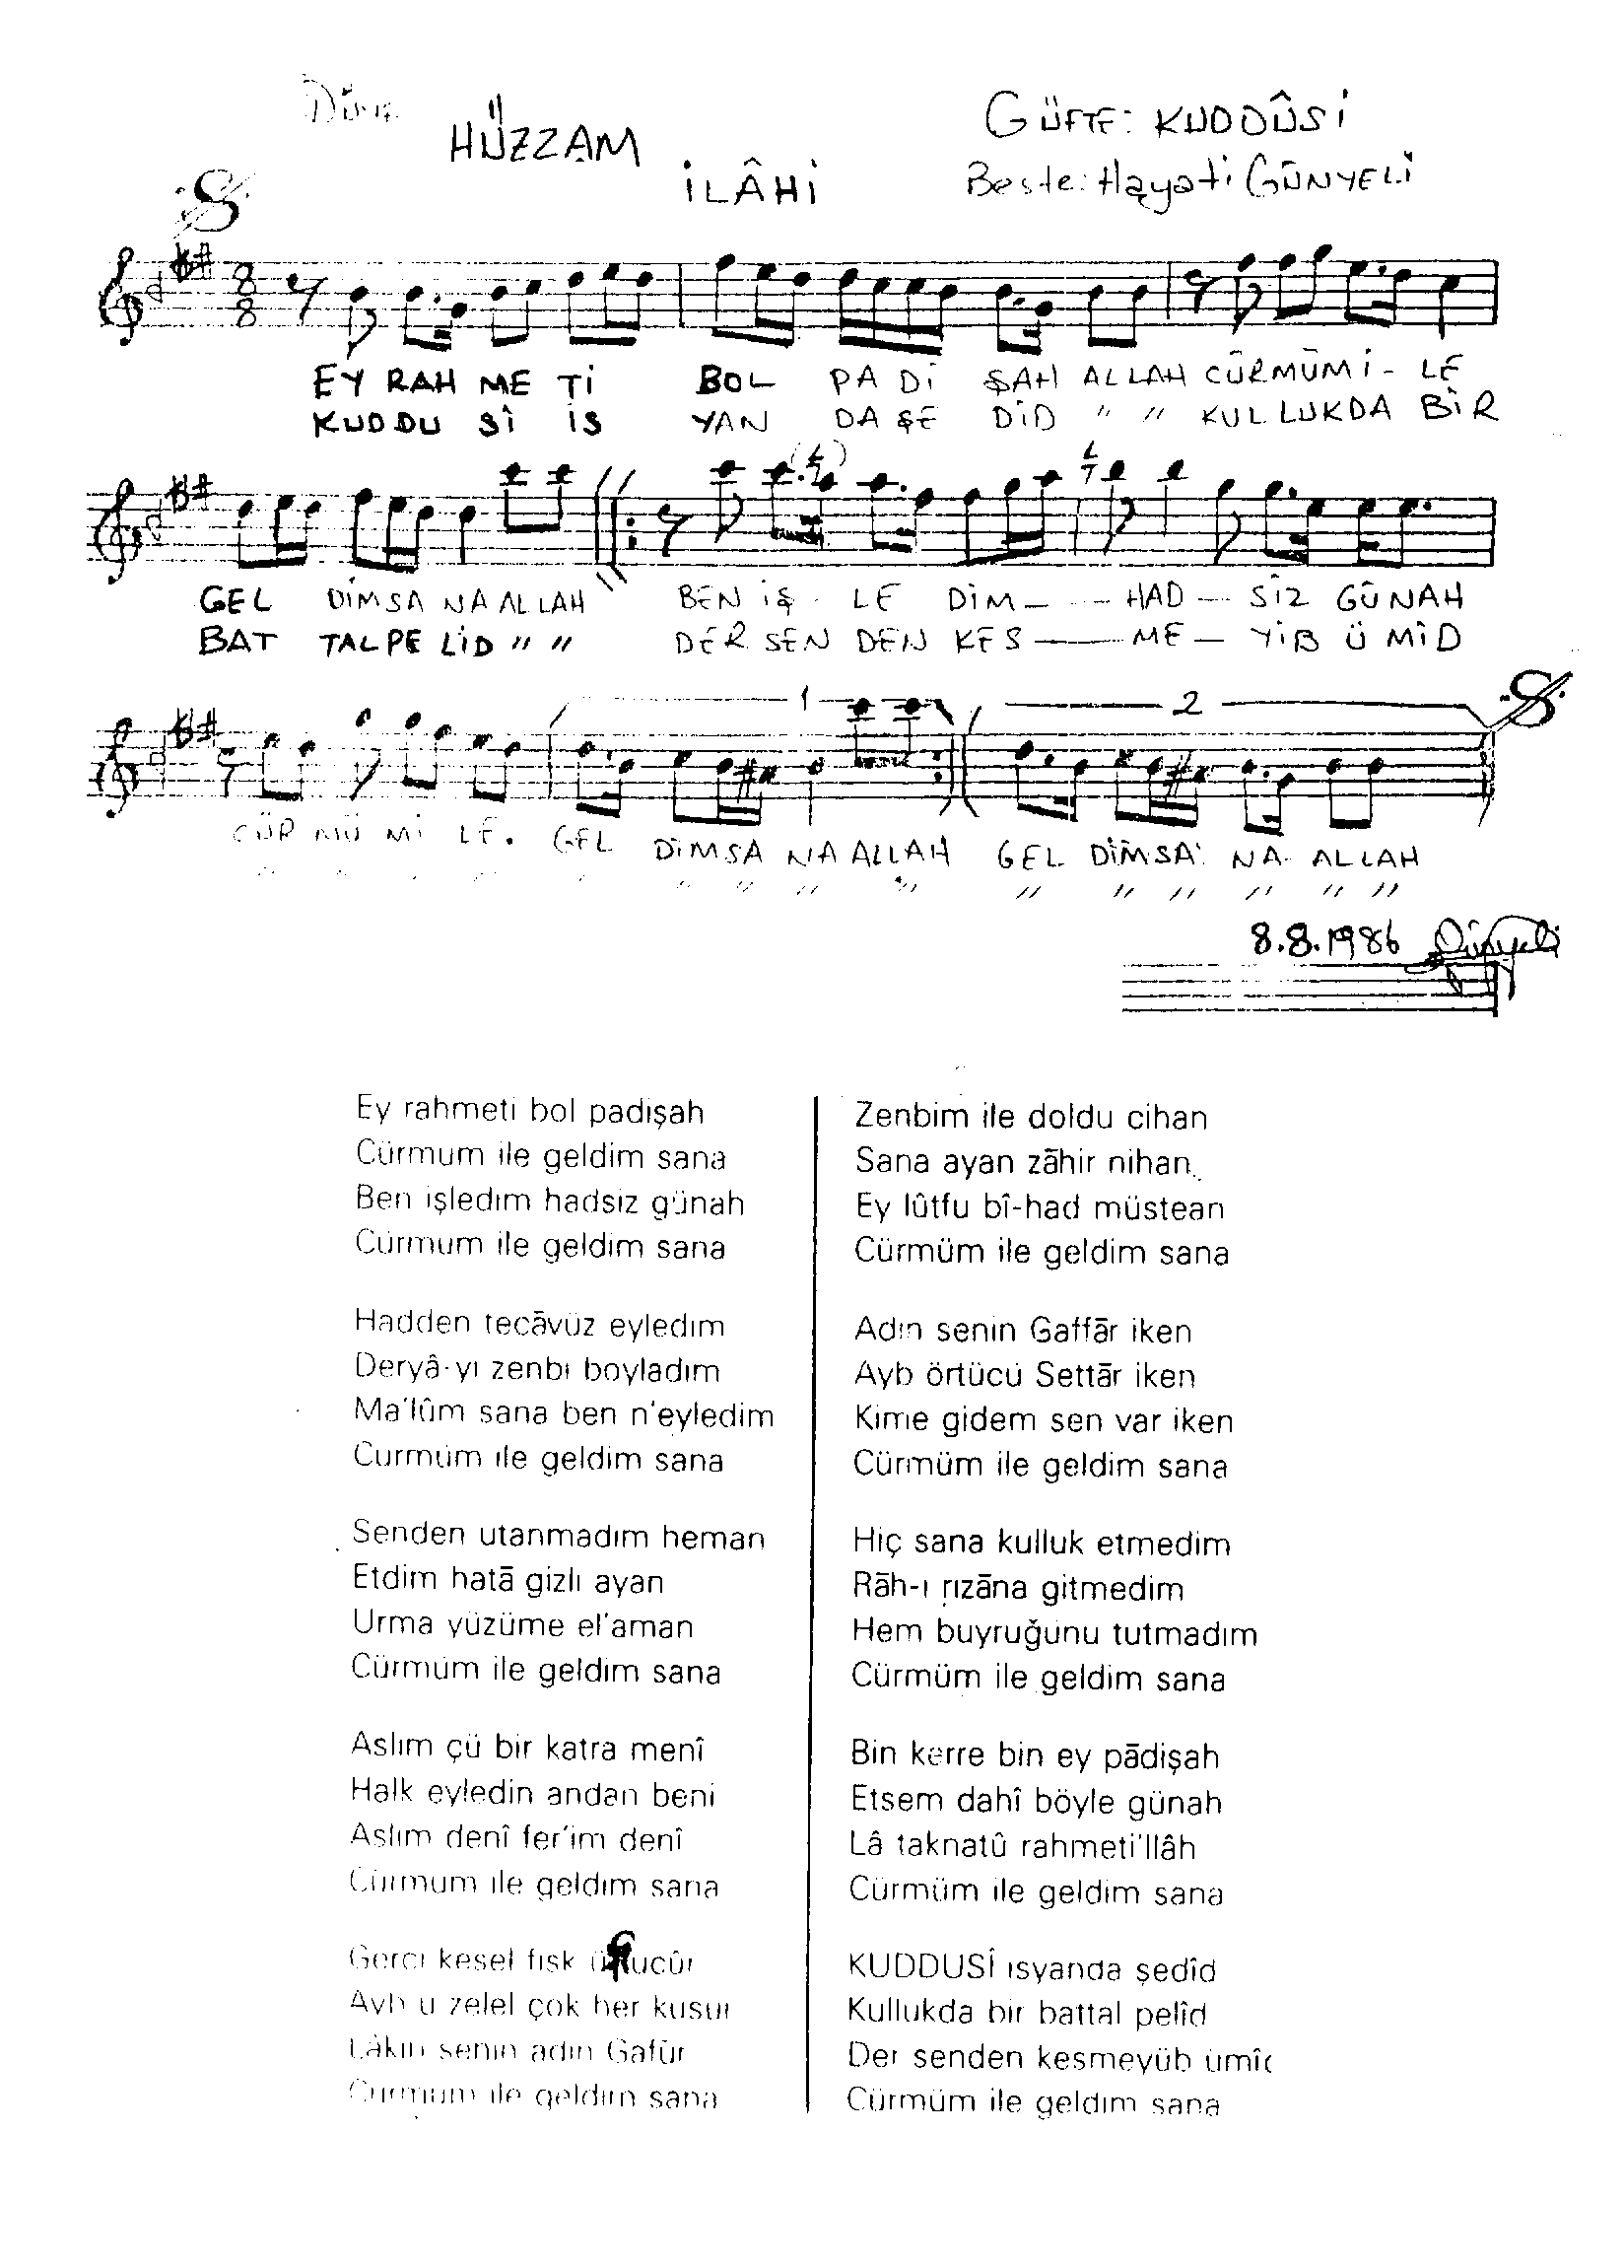 HÜZZAM
İLÂHİ
GÜFTE: KUDDÛSİ
Beste: Hayati GÜNYELİ
8 8
EY RAH ME Tİ BOL PA Dİ ŞAH ALLAH CÜRMÜMİ - LE
KUDDU SÎ İS YAN DA ŞE DİD " " KULLUKDA BİR
GEL DİMSA NA ALLAH BEN İŞ - LE DİM — - — HAD — SİZ GÜNAH
BAT TALPE LİD " " DER SEN DEN KES — ME — YİB Ü MİD
1 2
CÜR MÜ Mİ LE. GEL DİMSA NA ALLAH GEL DİMSA NA ALLAH
" " " " " " " " " "
8.8.1986 Günyeli
Ey rahmeti bol padişah
Cürmum ile geldim sana
Ben işledim hadsiz günah
Cürmum ile geldim sana
Hadden tecāvüz eyledim
Deryâ-yı zenbi boyladım
Ma'lûm sana ben n'eyledim
Cürmüm ile geldim sana
Senden utanmadım heman
Etdim hatā gizli ayan
Urma yüzüme el'aman
Cürmüm ile geldim sana
Aslım çü bir katra menî
Halk eyledin andan beni
Aslım denî fer'im denî
Cürmum ile geldim sana
Gerçi kesel fısk ü fucûr
Ayb u zelel çok her kusur
Lâkin senin adın Gafûr
Cürmüm ile geldim sana
Zenbim ile doldu cihan
Sana ayan zāhir nihan
Ey lûtfu bî-had müstean
Cürmüm ile geldim sana
Adın senin Gaffār iken
Ayb örtücü Settār iken
Kime gidem sen var iken
Cürmüm ile geldim sana
Hiç sana kulluk etmedim
Rāh-ı rızāna gitmedim
Hem buyruğunu tutmadım
Cürmüm ile geldim sana
Bin kerre bin ey pādişah
Etsem dahî böyle günah
Lâ taknatû rahmeti'llâh
Cürmüm ile geldim sana
KUDDUSÎ isyanda şedîd
Kullukda bir battal pelîd
Der senden kesmeyüb ümîd
Cürmüm ile geldim sana